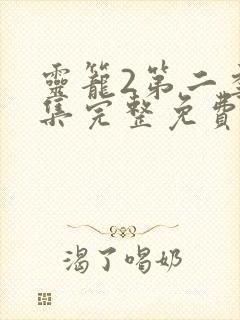 靈籠2第二季
集完整免費
渴了喝奶